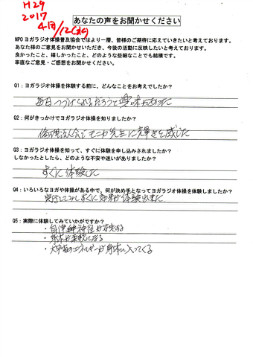 H29
2017
4月/12(水)
あなたの声をお聞かせください
NPOヨガラジオ体操普及協会ではより一層、皆様のご期待に応えていきたいと考えております。
あなた様のご意見をお聞かせいただき、今後の活動に反映したいと考えております。
良かったこと、得られたこと、どのような些細なことでも結構です。
率直なご意見・ご感想をお聞かせください。
Q1：ヨガラジオ体操を体験する前に、どんなことをお考えでしたか？
毎日
Q2：何がきっかけでヨガラジオ体操を知りましたか？
を感じた
Q3：ヨガラジオ体操を知って、すぐに体験を申し込みされましたか？
しなかったとしたら、どのような不安や迷いがありましたか？
すぐに体験した
Q4：いろいろなヨガや体操がある中で、何が決め手となってヨガラジオ体操を体験しましたか？
すぐに効果が
Q5：実際に体験してみていかがですか？
・自律神経が
・身体が柔軟になる
・エネルギーが身体に入ってくる